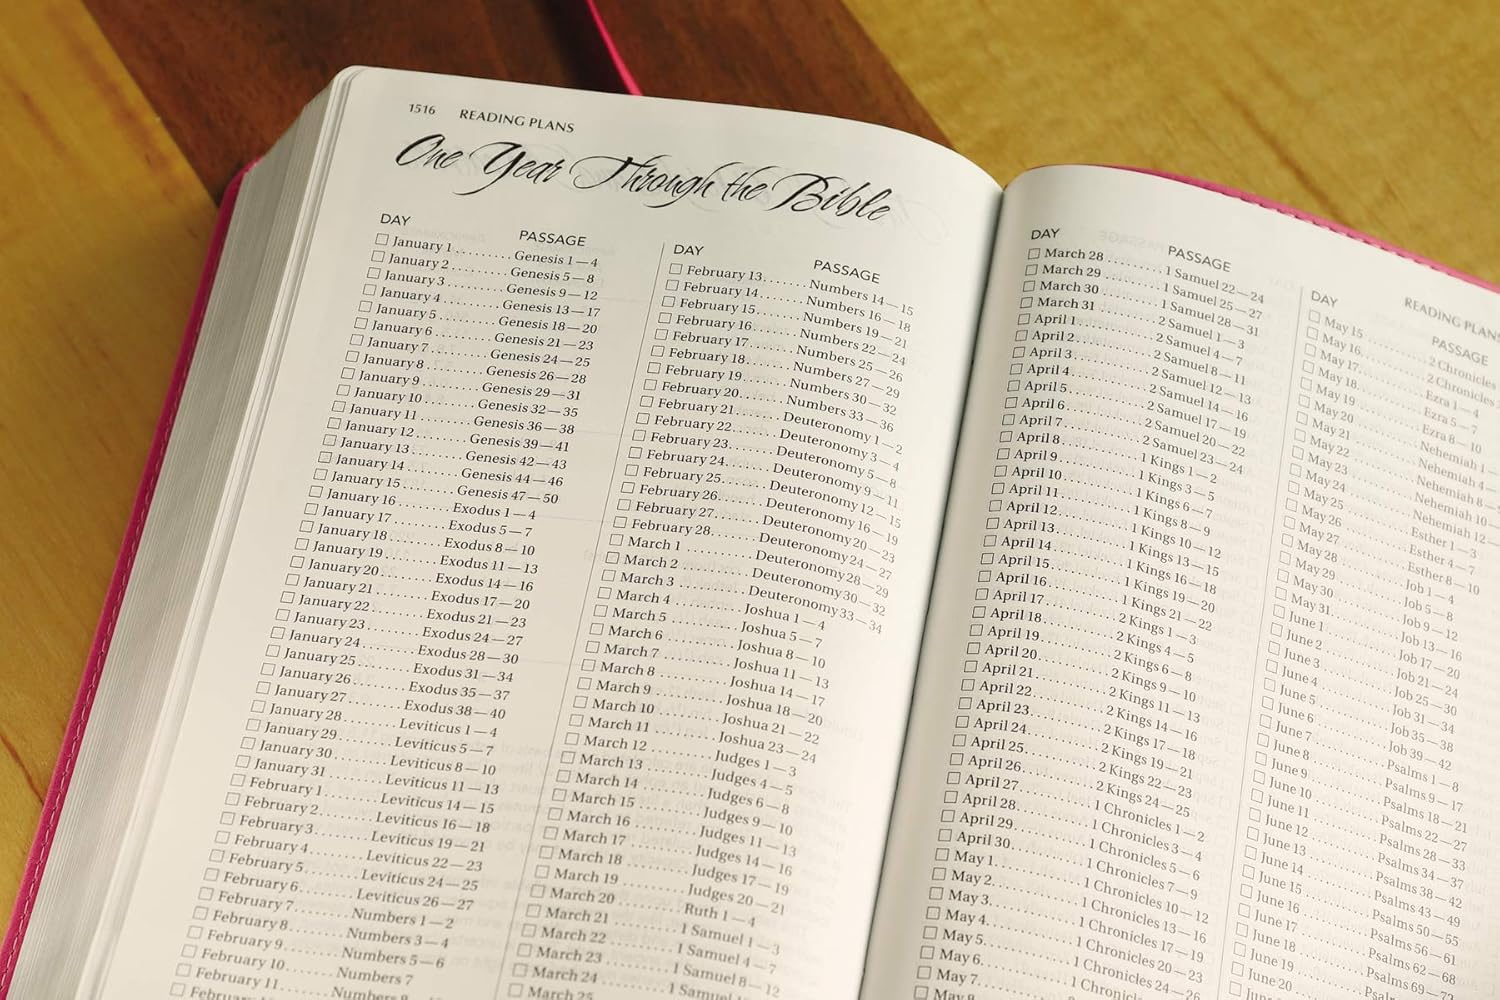 1516 READING PLANS
One Year Through the Bible
DAY PASSAGE
January 1 ........ Genesis 1—4
January 2 ........ Genesis 5—8
January 3 ........ Genesis 9—12
January 4 ........ Genesis 13—17
January 5 ........ Genesis 18—20
January 6 ........ Genesis 21—23
January 7 ........ Genesis 24—25
January 8 ........ Genesis 26—28
January 9 ........ Genesis 29—31
January 10 ........ Genesis 32—35
January 11 ........ Genesis 36—38
January 12 ........ Genesis 39—41
January 13 ........ Genesis 42—43
January 14 ........ Genesis 44—46
January 15 ........ Genesis 47—50
January 16 ........ Exodus 1—4
January 17 ........ Exodus 5—7
January 18 ........ Exodus 8—10
January 19 ........ Exodus 11—13
January 20 ........ Exodus 14—16
January 21 ........ Exodus 17—20
January 22 ........ Exodus 21—23
January 23 ........ Exodus 24—27
January 24 ........ Exodus 28—30
January 25 ........ Exodus 31—34
January 26 ........ Exodus 35—37
January 27 ........ Exodus 38—40
January 28 ........ Leviticus 1—4
January 29 ........ Leviticus 5—7
January 30 ........ Leviticus 8—10
January 31 ........ Leviticus 11—13
February 1 ........ Leviticus 14—15
February 2 ........ Leviticus 16—18
February 3 ........ Leviticus 19—21
February 4 ........ Leviticus 22—23
February 5 ........ Leviticus 24—25
February 6 ........ Leviticus 26—27
February 7 ........ Numbers 1—2
February 8 ........ Numbers 3—4
February 9 ........ Numbers 5—6
February 10 ........ Numbers 7
February 11 ........ Numbers
DAY PASSAGE
February 13 ........ Numbers 14—15
February 14 ........ Numbers 16—18
February 15 ........ Numbers 19—21
February 16 ........ Numbers 22—24
February 17 ........ Numbers 25—26
February 18 ........ Numbers 27—29
February 19 ........ Numbers 30—32
February 20 ........ Numbers 33—36
February 21 ........ Deuteronomy 1—2
February 22 ........ Deuteronomy 3—4
February 23 ........ Deuteronomy 5—8
February 24 ........ Deuteronomy 9—11
February 25 ........ Deuteronomy 12—15
February 26 ........ Deuteronomy 16—19
February 27 ........ Deuteronomy 20—23
February 28 ........ Deuteronomy 24—27
March 1 ........ Deuteronomy 28—29
March 2 ........ Deuteronomy 30—32
March 3 ........ Deuteronomy 33—34
March 4 ........ Joshua 1—4
March 5 ........ Joshua 5—7
March 6 ........ Joshua 8—10
March 7 ........ Joshua 11—13
March 8 ........ Joshua 14—17
March 9 ........ Joshua 18—20
March 10 ........ Joshua 21—22
March 11 ........ Joshua 23—24
March 12 ........ Judges 1—3
March 13 ........ Judges 4—5
March 14 ........ Judges 6—8
March 15 ........ Judges 9—10
March 16 ........ Judges 11—13
March 17 ........ Judges 14—16
March 18 ........ Judges 17—19
March 19 ........ Judges 20—21
March 20 ........ Ruth 1—4
March 21 ........ 1 Samuel 1—3
March 22 ........ 1 Samuel 4—7
March 23 ........ 1 Samuel 8—12
March 24 ........ 1 Samuel
March 25
DAY PASSAGE
March 28 ........ 1 Samuel 22—24
March 29 ........ 1 Samuel 25—27
March 30 ........ 1 Samuel 28—31
March 31 ........ 2 Samuel 1—3
April 1 ........ 2 Samuel 4—7
April 2 ........ 2 Samuel 8—11
April 3 ........ 2 Samuel 12—13
April 4 ........ 2 Samuel 14—16
April 5 ........ 2 Samuel 17—19
April 6 ........ 2 Samuel 20—22
April 7 ........ 2 Samuel 23—24
April 8 ........ 1 Kings 1—2
April 9 ........ 1 Kings 3—5
April 10 ........ 1 Kings 6—7
April 11 ........ 1 Kings 8—9
April 12 ........ 1 Kings 10—12
April 13 ........ 1 Kings 13—15
April 14 ........ 1 Kings 16—18
April 15 ........ 1 Kings 19—20
April 16 ........ 1 Kings 21—22
April 17 ........ 2 Kings 1—3
April 18 ........ 2 Kings 4—5
April 19 ........ 2 Kings 6—8
April 20 ........ 2 Kings 9—10
April 21 ........ 2 Kings 11—13
April 22 ........ 2 Kings 14—16
April 23 ........ 2 Kings 17—18
April 24 ........ 2 Kings 19—21
April 25 ........ 2 Kings 22—23
April 26 ........ 2 Kings 24—25
April 27 ........ 1 Chronicles 1—2
April 28 ........ 1 Chronicles 3—4
April 29 ........ 1 Chronicles 5—6
April 30 ........ 1 Chronicles 7—9
May 1 ........ 1 Chronicles 10—12
May 2 ........ 1 Chronicles 13—16
May 3 ........ 1 Chronicles 17—19
May 4 ........ 1 Chronicles 20—23
May 5 ........ 1 Chronicles 24—26
May 6
May 7
May 8
READING PLANS
DAY PASSAGE
May 15 ........ 2 Chronicles
May 16 ........ 2 Chronicles
May 17 ........ Ezra 1—4
May 18 ........ Ezra 5—7
May 19 ........ Ezra 8—10
May 20 ........ Nehemiah 1—
May 21 ........ Nehemiah 4—
May 22 ........ Nehemiah 8—
May 23 ........ Nehemiah 10—
May 24 ........ Nehemiah 12—
May 25 ........ Esther 1—3
May 26 ........ Esther 4—7
May 27 ........ Esther 8—10
May 28 ........ Job 1—4
May 29 ........ Job 5—8
May 30 ........ Job 9—12
May 31 ........ Job 13—16
June 1 ........ Job 17—20
June 2 ........ Job 21—24
June 3 ........ Job 25—30
June 4 ........ Job 31—34
June 5 ........ Job 35—38
June 6 ........ Job 39—42
June 7 ........ Psalms 1—8
June 8 ........ Psalms 9—17
June 9 ........ Psalms 18—21
June 10 ........ Psalms 22—27
June 11 ........ Psalms 28—33
June 12 ........ Psalms 34—37
June 13 ........ Psalms 38—42
June 14 ........ Psalms 43—49
June 15 ........ Psalms 50—55
June 16 ........ Psalms 56—61
June 17 ........ Psalms 62—68
June 18 ........ Psalms 69—72
June 19
June 20